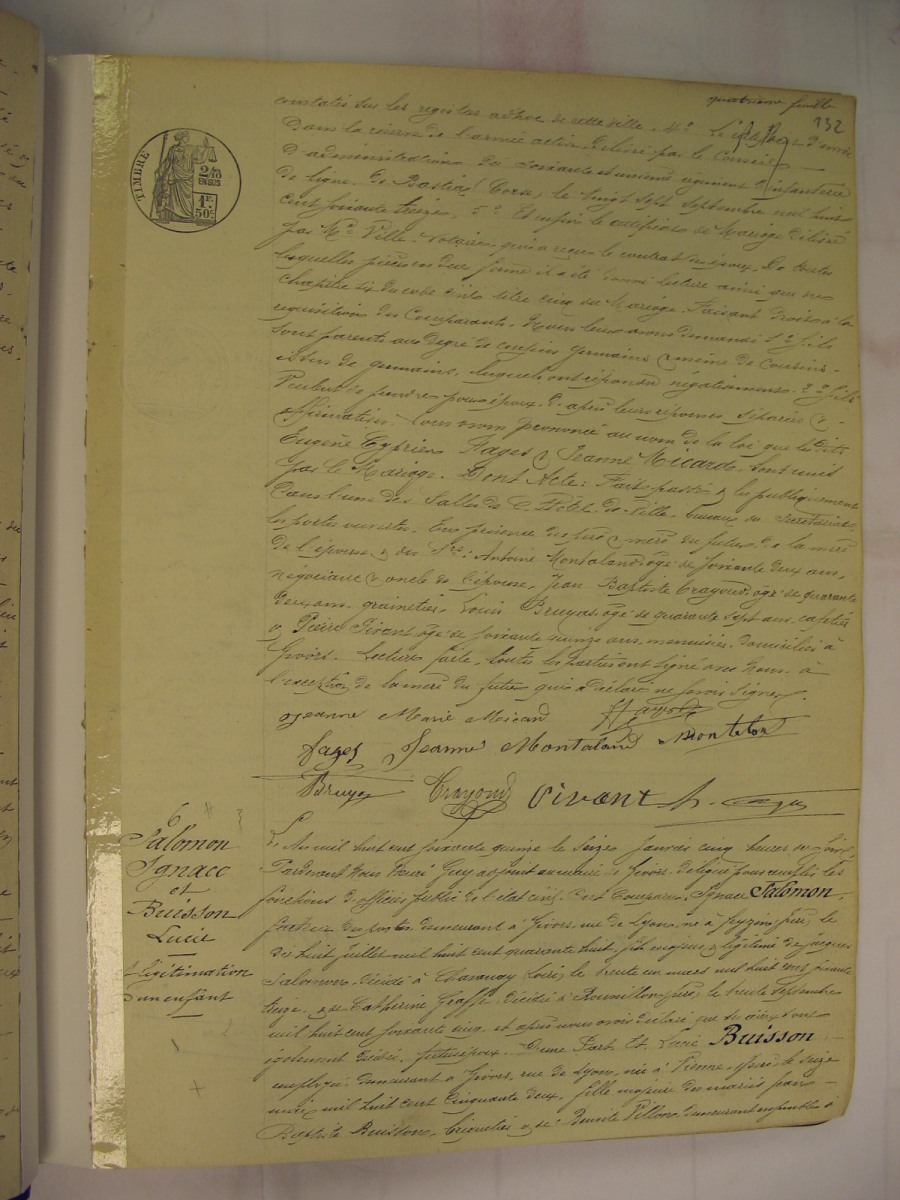 quatrième feuille
132
TIMBRE
2/10
EN SUS
1F.
50c
constatés sur les registres de cette ville. 4° Le certificat d'envoi
Dans la réserve de l'armée active délivré par le Conseil
D'administration du soixante et unième régiment d'infanterie
de ligne, de Bastia (Corse), le vingt sept septembre mil huit
cent soixante treize, 5° Et enfin le certificat de Mariage délivré
par Me Ville, Notaire, qui a reçu le contrat des époux. De toutes
lesquelles pièces en due forme il a été donné lecture ainsi que du
chapitre six du code civil titre cinq du Mariage. Faisant droit à la
requisition des Comparants, Nous leur avons demandé 1° s'ils
sont parents au degré de cousins germains & même de Cousins
issus de germains, lesquels ont répondu négativement. 2° s'ils
veulent se prendre pour époux. D'après leurs réponses séparées &
affirmatives Nous avons prononcé au nom de la loi que les dits
Eugène Cyprien Fages & Jeanne Micard sont unis
par le Mariage. Dont Acte: Fait, passé & lu publiquement
Dans l'une des Salles de l'Hôtel-de-Ville, bureau du Secrétariat
les portes ouvertes. En présence des père & mère du futur, de la mère
de l'épouse, & des Srs: Antoine Montaland, âgé de soixante deux ans,
négociant & oncle de l'épouse, Jean Baptiste Crayond, âgé de quarante
deux ans, grainetier, Louis Bruyas âgé de quarante sept ans, cafetier
& Pierre Pivant, âgé de soixante quinze ans, menuisier, domiciliés à
Givors. Lecture faite, toutes les parties ont signé avec Nous à
l'exception de la mère du futur qui a déclaré ne savoir signer.
Jeanne Marie Micard
Fages Jeanne Montaland Montaland
Bruyas Crayond Pivant
6
Salomon
Ignace
et
Buisson
Lucie
Légitimation
d'un enfant
L'An mil huit cent soixante quinze le Seize Janvier cinq heures du soir
Pardevant Nous Henri Guy adjoint au maire de Givors, délégué pour remplir les
fonctions d'officier public de l'état civil. Ont Comparu Ignace Salomon,
facteur des postes, demeurant à Givors, rue de Lyon, né à Feyzin (Isère), le
dix huit juillet mil huit cent quarante huit, fils majeur & légitime de Jacques
Salomon, décédé à Chavanay (Loire), le trente un mars mil huit cent soixante
treize, & de Catherine Graffe, décédée à Roussillon (Isère), le trente Septembre
mil huit cent soixante cinq, et après nous avoir déclaré que ses aïeux sont
également décédés. futur époux. D'une Part. Et Lucie Buisson
employée, demeurant à Givors, rue de Lyon, née à Vienne (Isère), le seize
mai mil huit cent Cinquante deux, fille majeure des mariés Jean
Baptiste Buisson, briquetier & de Benoîte Pillon, demeurant ensemble à